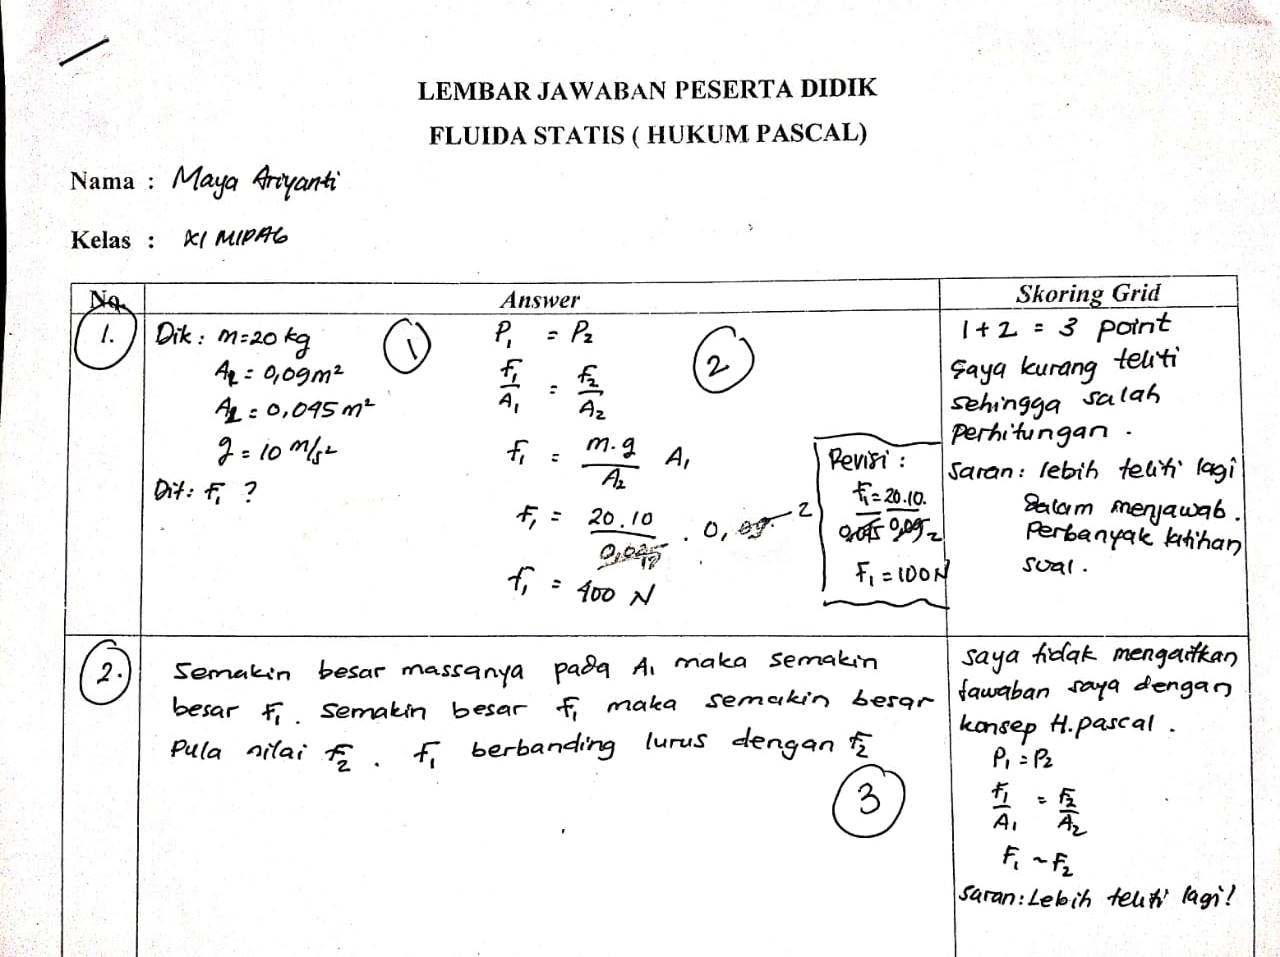 LEMBAR JAWABAN PESERTA DIDIK
FLUIDA STATIS ( HUKUM PASCAL)
Nama : Maya Ariyanti
Kelas : XI MIPA6
No.
Answer
Skoring Grid
1.
Dik : m=20 kg
A₂ = 0,09m²
A₁ = 0,045 m²
g = 10 m/s²
Dit : F₁ ?
1
P₁ = P₂
F₁/A₁ = F₂/A₂
F₁ = m.g/A₂ A₁
F₁ = 20.10/ . 0, 2
F₁ = 400 N
2
Revisi :
F₁/0,045 = 20.10./0,09
F₁ = 100N
1+2 = 3 point
Saya kurang teliti
sehingga salah
perhitungan .
Saran : lebih teliti lagi
dalam menjawab.
Perbanyak latihan
soal .
2.
Semakin besar massanya pada A₁ maka semakin
besar F₁. Semakin besar F₁ maka semakin besar
Pula nilai F₂ . F₁ berbanding lurus dengan F₂
3
saya tidak mengaitkan
jawaban saya dengan
konsep H.pascal .
P₁ = P₂
F₁/A₁ = F₂/A₂
F₁ ~ F₂
Saran : Lebih teliti lagi!